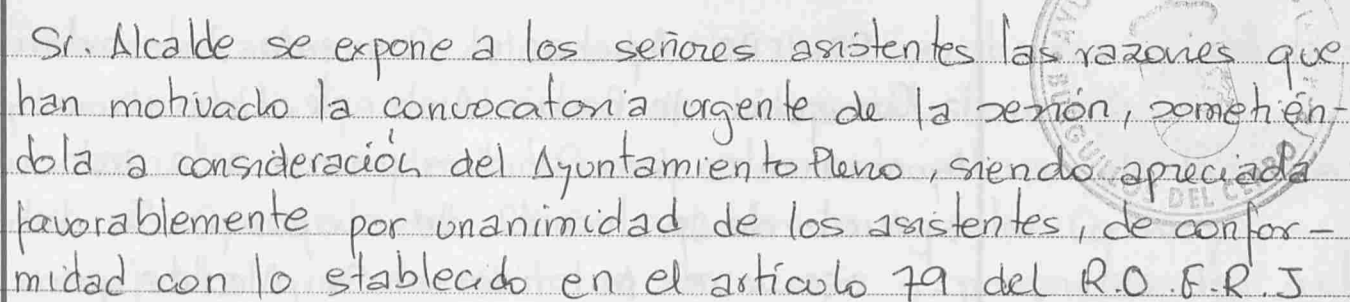 Sr. Alcalde se expone a los señores asistentes las razones que
han motivado la convocatoria urgente de la sesión, sometién-
dola a consideración del Ayuntamiento Pleno, siendo apreciada
favorablemente por unanimidad de los asistentes, de confor-
midad con lo establecido en el artículo 79 del R.O.F.R.J
DEL CE